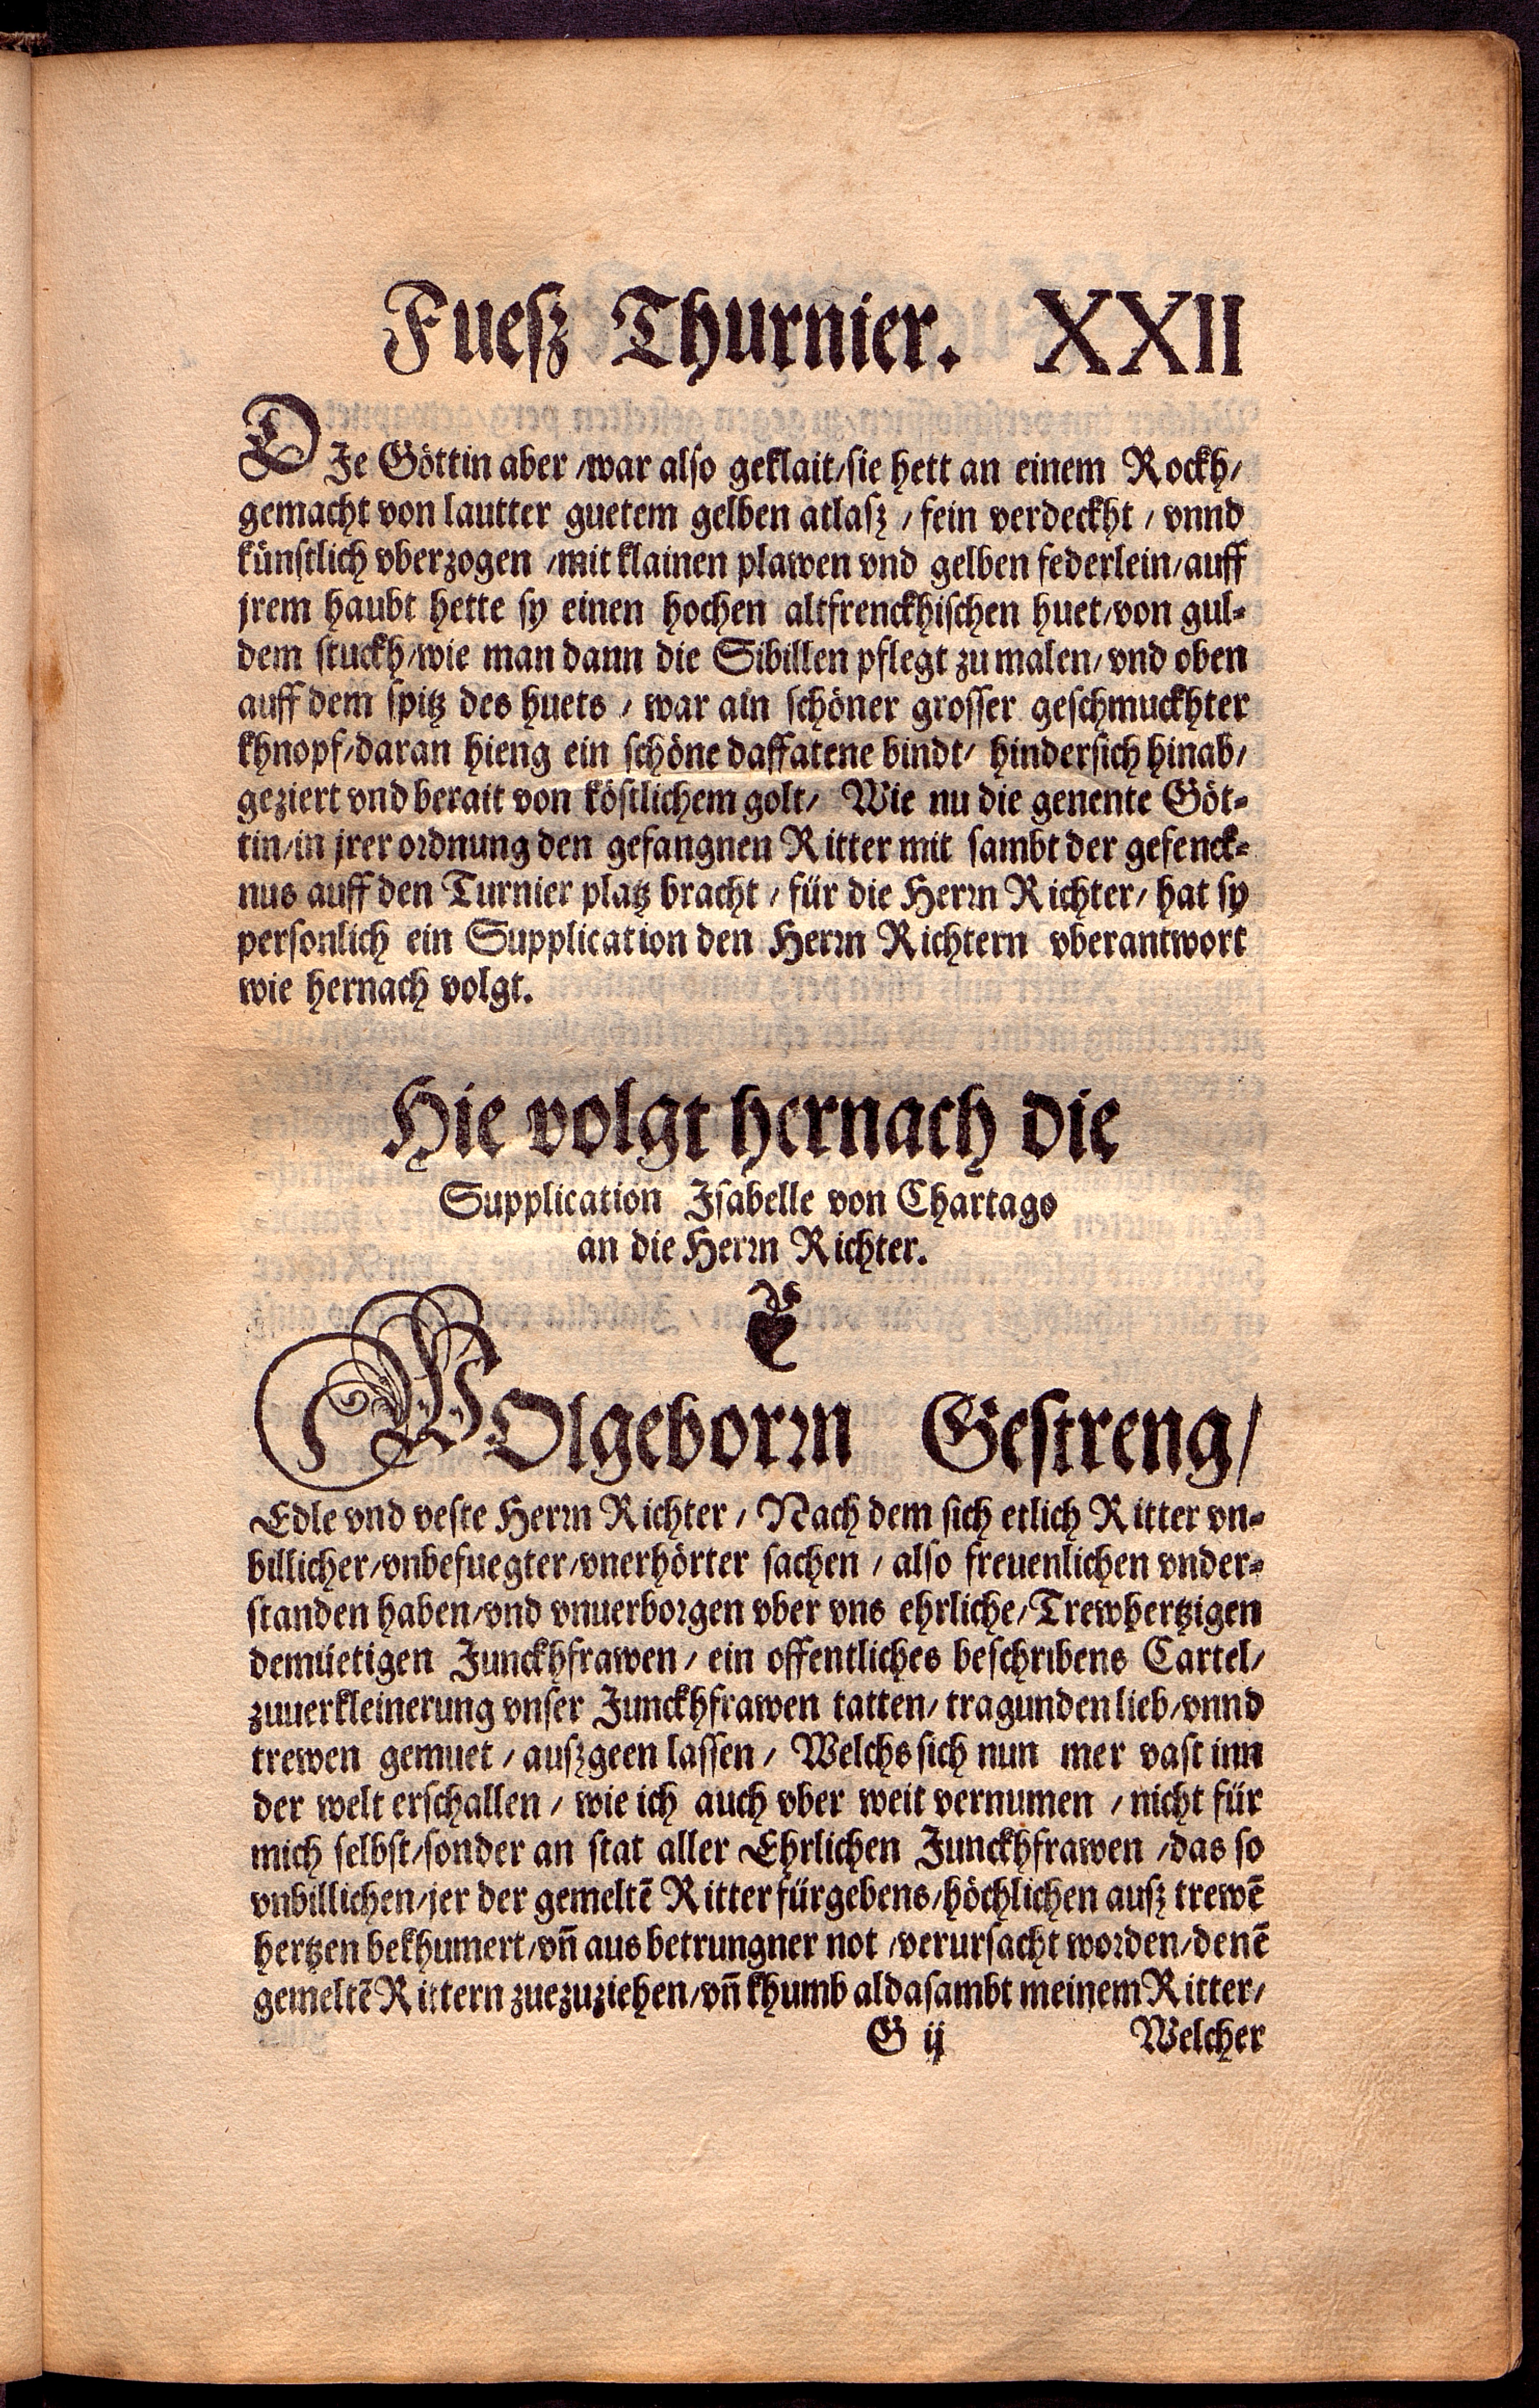 Fuesz Thurnier. XXII
DJe Göttin aber /war also geklait/sie hett an einem Rockh/
gemacht von lautter guetem gelben atlasz / fein verdeckht / vnnd
künstlich vberzogen /mit klainen plawen vnd gelben federlein/auff
jrem haubt hette sy einen hochen altfrenckhischen huet/von gul⸗
dem stuckh/wie man dann die Sibillen pflegt zu malen/vnd oben
auff dem spitz des huets / war ain schöner grosser geschmuckhter
khnopf/daran hieng ein schöne daffatene bindt/ hindersich hinab/
geziert vnd berait von köstlichem golt/ Wie nu die genente Göt⸗
tin/in jrer ordnung den gefangnen Ritter mit sambt der gefenck⸗
nus auff den Turnier platz bracht / für die Herꝛn Richter/ hat sy
personlich ein Supplication den Herꝛn Richtern vberantwort
wie hernach volgt.
Hie volgt hernach die
Supplication Jsabelle von Chartago
an die Herꝛn Richter.
WOlgeborꝛn Gestreng/
Edle vnd veste Herꝛn Richter / Nach dem sich etlich Ritter vn⸗
billicher/vnbefuegter/vnerhörter sachen / also freuenlichen vnder⸗
standen haben/vnd vnuerborgen vber vns ehrliche/Trewhertzigen
demüetigen Junckhfrawen/ ein offentliches beschribens Cartel/
zuuerkleinerung vnser Junckhfrawen tatten/ tragunden lieb/vnnd
trewen gemuet / auszgeen lassen / Welchs sich nun mer vast inn
der welt erschallen / wie ich auch vber weit vernumen / nicht für
mich selbst/sonder an stat aller Ehrlichen Junckhfrawen /das so
vnbillichen/jer der gemeltē Ritter fürgebens/höchlichen ausz trewē
hertzen bekhumert/vn̄ aus betrungner not /verursacht worden/denē
gemeltē Rittern zuezuziehen/vn̄ khumb alda sambt meinem Ritter/
G ij Welcher